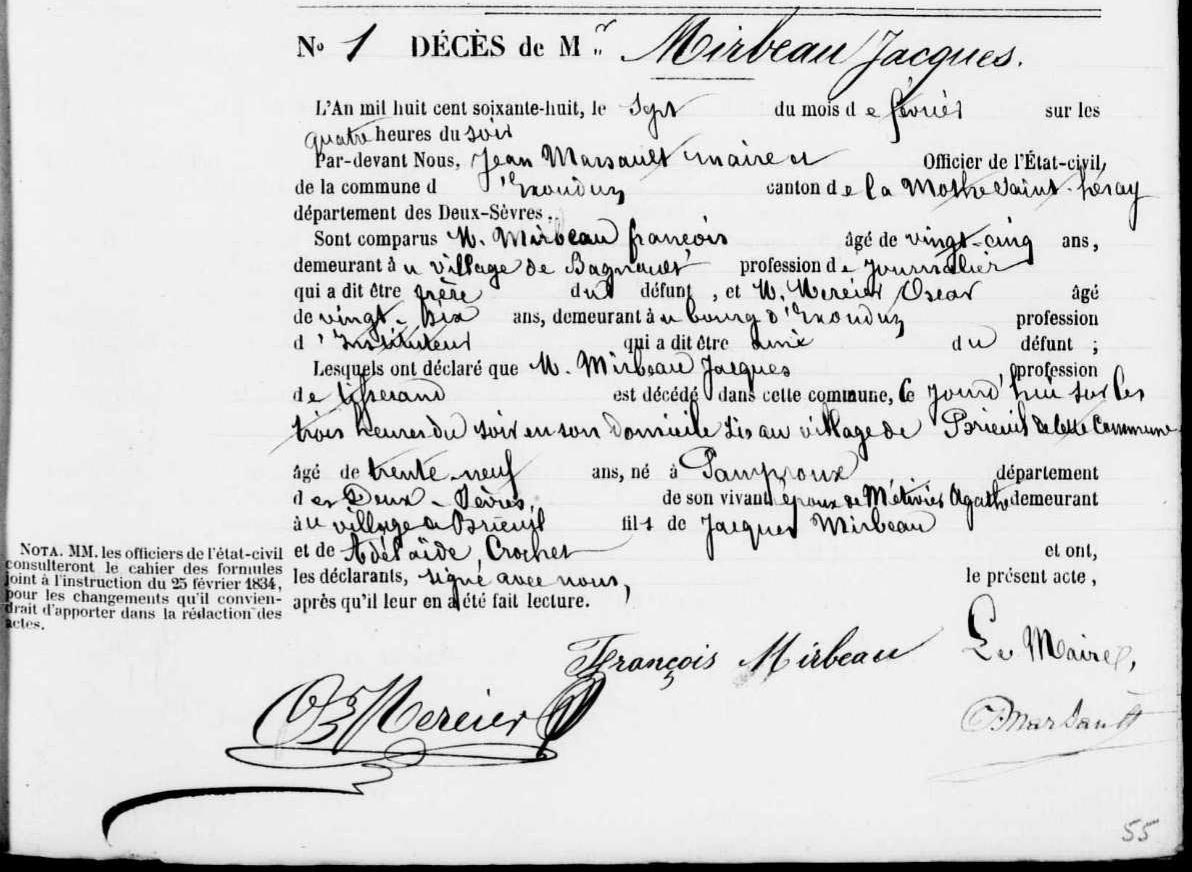 N° 1 DÉCÈS de Mr Mirbeau Jacques.
L'An mil huit cent soixante-huit, le Sept du mois de février sur les
quatre heures du soir
Par-devant Nous, Jean Marsault maire et Officier de l'État-civil,
de la commune d'Exoudun canton de la Mothe Saint-héray
département des Deux-Sèvres.
Sont comparus M. Mirbeau françois âgé de vingt-cinq ans,
demeurant au village de Bagnault profession de journalier
qui a dit être frère du défunt, et M. Mercier Oscar âgé
de vingt-six ans, demeurant au bourg d'Exoudun profession
d'Instituteur qui a dit être ami du défunt ;
Lesquels ont déclaré que M. Mirbeau Jacques profession
de tisserand est décédé dans cette commune, ce jourd'hui sur les
trois heures du soir en son domicile sis au village de Brieuil de cette Commune
âgé de trente-neuf ans, né à Pamproux département
des Deux-Sèvres, de son vivant époux de Métivier Agathe demeurant
au village de Brieuil fils de Jacques Mirbeau
et de Adélaïde Crochet et ont,
les déclarants, signé avec nous, le présent acte,
après qu'il leur en a été fait lecture.
NOTA. MM. les officiers de l'état-civil
consulteront le cahier des formules
joint à l'instruction du 25 février 1834,
pour les changements qu'il convien-
drait d'apporter dans la rédaction des
actes.
François Mirbeau Le Maire,
Mercier Marsault
55